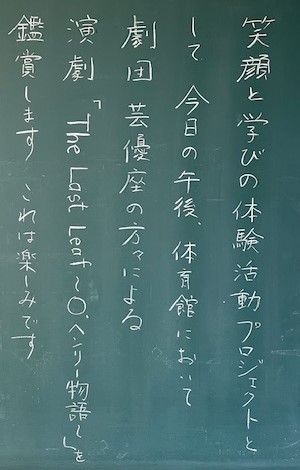 笑顔と学びの体験活動プロジェクトと
して 今日の午後、体育館において
劇団 芸優座の方々による
演劇「The Last Leaf～O.ヘンリー物語～」を
鑑賞します これは楽しみです